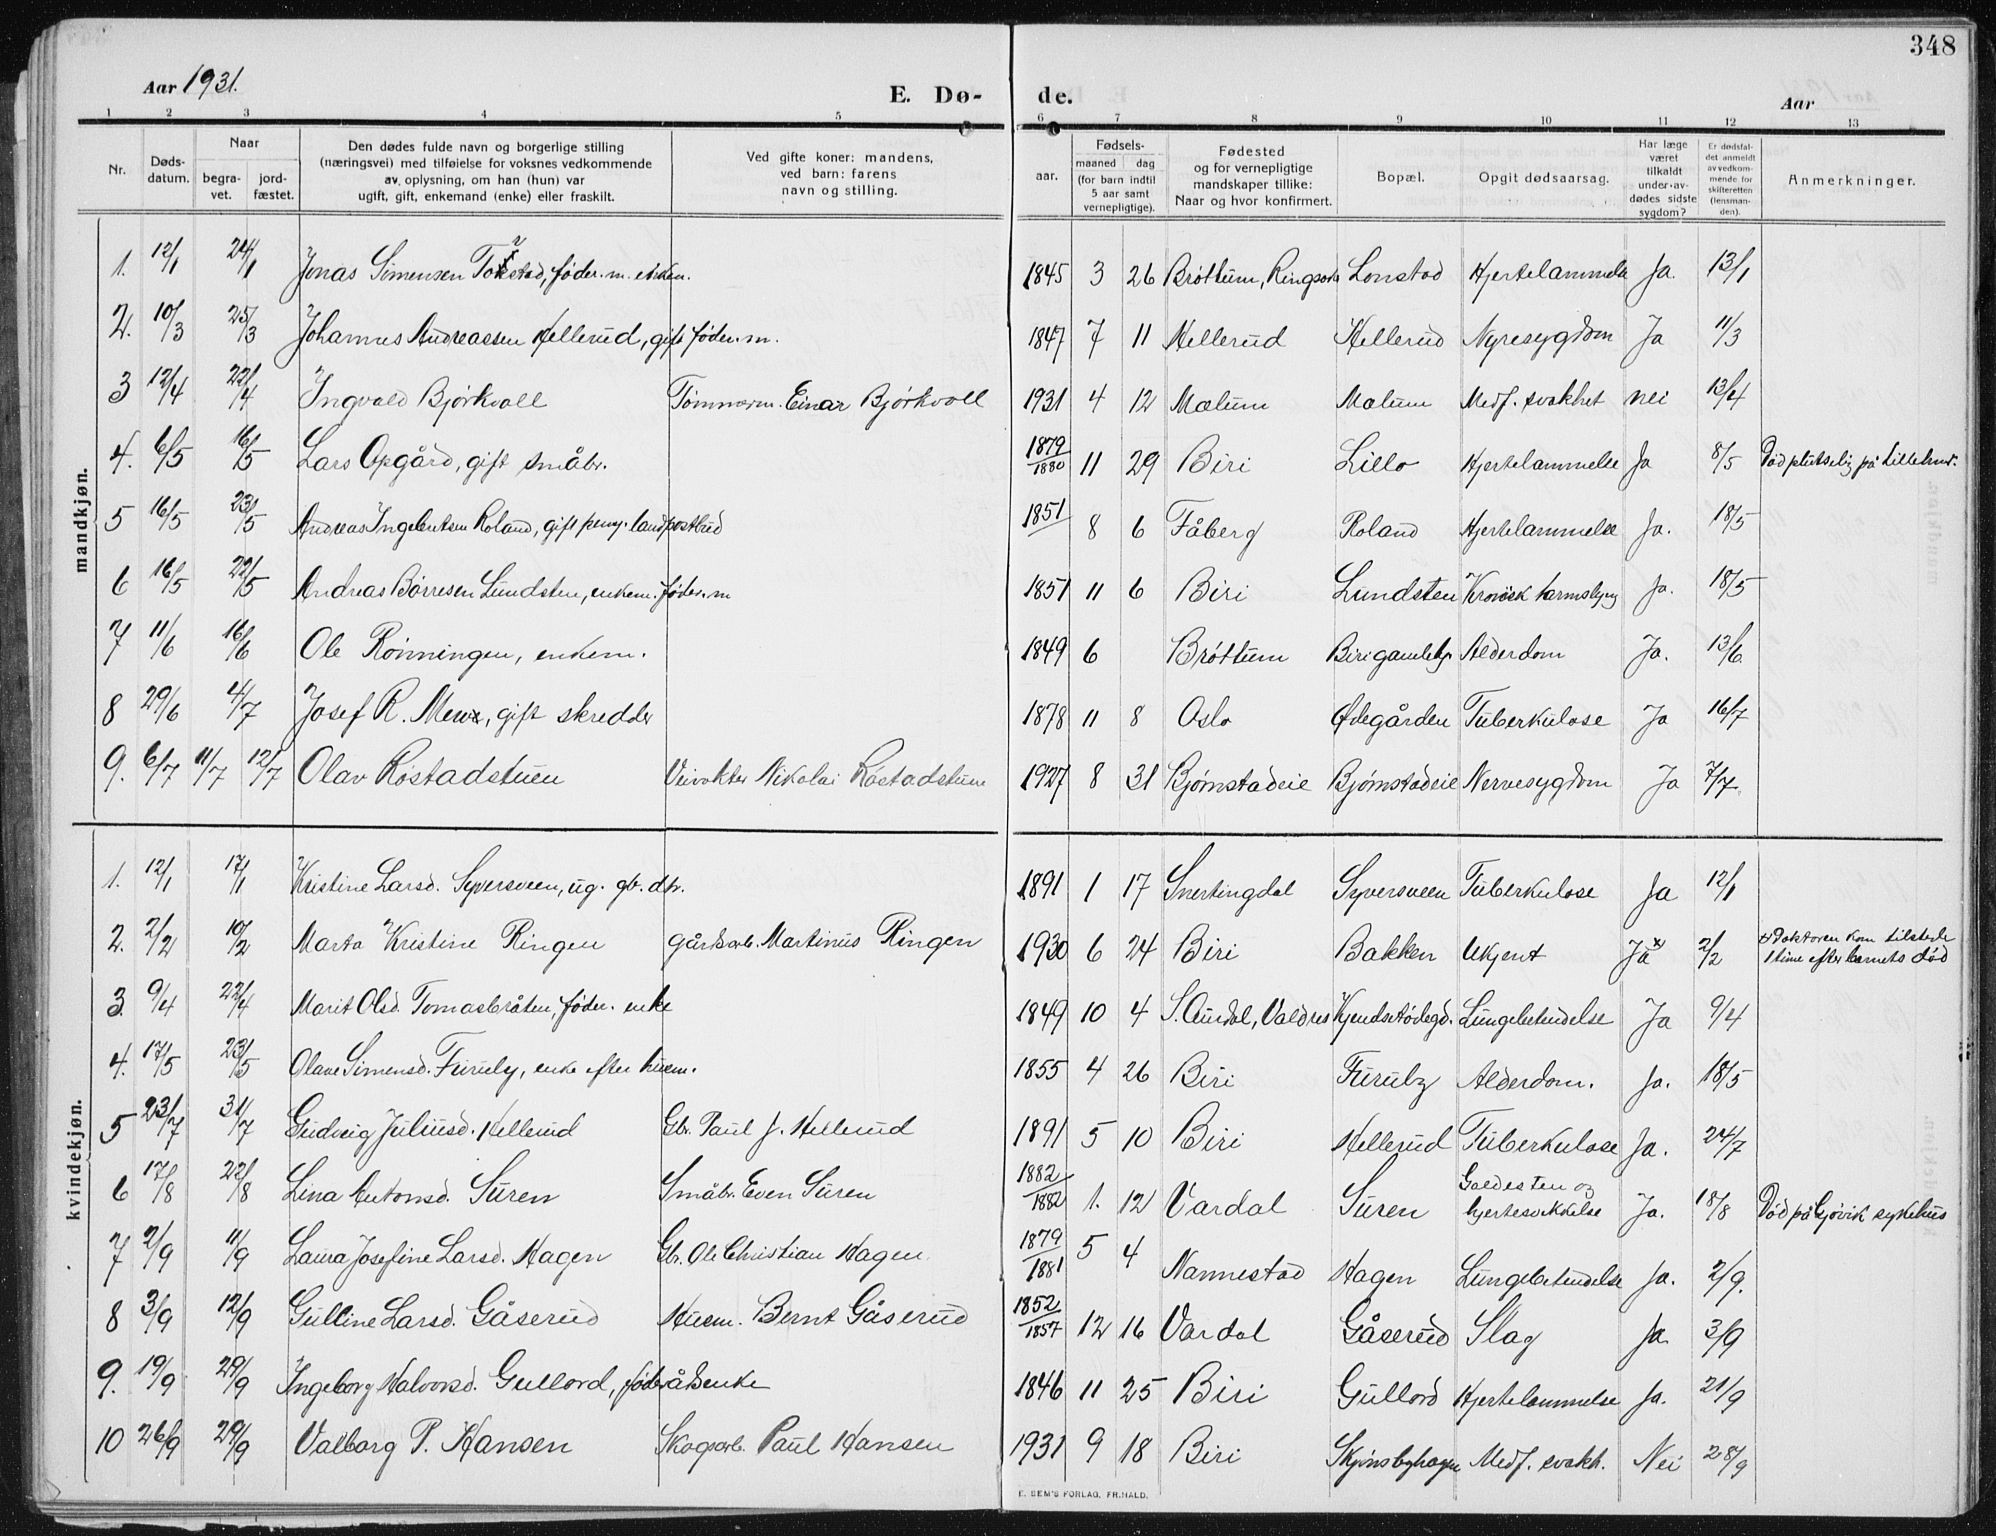 348
Aar 1931.
E. Dø- de.
Aar
1 2 3 4 5 6 7 8 9 10 11 12 13
Nr.
Døds-
datum.
Naar
begra-
vet.
jord-
fæstet.
Den dødes fulde navn og borgerlige stilling
(næringsvei) med tilføielse for voksnes vedkommende
av oplysning, om han (hun) var
ugift, gift, enkemand (enke) eller fraskilt.
Ved gifte koner: mandens,
ved barn: farens
navn og stilling.
Fødsels-
aar.
maaned dag
(for barn indtil
5 aar samt
vernepligtige).
Fødested
og for vernepligtige
mandskaper tillike:
Naar og hvor konfirmert.
Bopæl.
Opgit dødsaarsag.
Har læge
været
tilkaldt
under av-
dødes sidste
sygdom?
Er dødsfal-
det anmeldt
av vedkom-
mende for
skifteretten
(lensman-
den).
Anmerkninger.
mandkjøn.
1. 12/1 24/1 Jonas Simensen, føder.m. enkem. 1845 3 26 Brøttum, Ringsaker Lonstad Hjertelammelse Ja. 13/1
2. 10/3 25/3 Johannes Andreassen Hellerud, gift føder.m. 1847 7 11 Hellerud Hellerud Nyresygdom Ja 11/3
3 12/4 22/4 Ingvald Bjørkvoll Tømmerm. Einar Bjørkvoll 1931 4 12 Mælum Mælum Medf. svakhet nei 13/4
4. 6/5 16/5 Lars Opgård, gift småbr. 1879/1880 11 29 Biri Lillo Hjertelammelse Ja 8/5 Død plutselig på Lilleham.
5 16/5 23/5 Andreas Ingebretsen Roland, gift pens. landpostbud 1851 8 6 Fåberg Roland Hjertelammelse Ja. 18/5
6 16/5 22/5 Andreas Børresen Lundsten, enkem. føder.m 1851 11 6 Biri Lundsten Kronisk tarmslyng Ja. 18/5
7 11/6 16/6 Ole Rønningen, enkem. 1849 6 Brøttum Biri gamlehj. Alderdom Ja. 13/6
8 29/6 4/7 Josef R. Menx, gift skredder 1878 11 8 Oslo Ødegården Tuberkulose Ja 16/7
9. 6/7 11/7 12/7 Olav Røstadstuen Veivokter Nikolai Røstadstuen 1927 8 31 Bjørnstadeie Bjørnstadeie Nervesygdom Ja 7/7
kvindekjøn.
1. 12/1 17/1 Kristine Larsd. Syversveen, ug. gbr. dtr. 1891 1 17 Snertingdal Syversveen Tuberkulose Ja 12/1
2. 2/2 10/2 Marta Kristine Ringen gårdsarb. Martinus Ringen 1930 6 24 Biri Bakken Ukjent Ja x 2/2 x) Doktoren kom tilstede
1 time efter barnets død
3. 9/4 22/4 Marit Olsd. Tomasbråten, føder. enke 1849 10 4 S. Aurdal, Valdres Kjendsetødegd. Lungebetendelse Ja 9/4
4. 17/5 23/5 Olave Simensd. Furuby, enke efter husm. 1855 4 26 Biri Furuby Alderdom. Ja. 18/5
5 23/7 31/7 Gudveig Juliusd. Hellerud Gbr. Paul J. Hellerud 1891 5 10 Biri Hellerud Tuberkulose Ja. 24/7
6 17/8 22/8 Lina Antonsd. Suren Småbr. Even Suren 1882/1882 1. 12 Vardal Suren Galdesten og
hjertesvekkelse Ja. 18/8 Død på Gjøvik sykehus
7 2/9 11/9 Laura Josefine Larsd. Hagen Gbr. Ole Christian Hagen 1879/1881 5 4 Nannestad Hagen Lungebetendelse Ja. 2/9.
8 3/9 12/9 Gulline Larsd. Gåserud Husm. Bernt Gåserud 1852/1857 12 16 Vardal Gåserud Slag Ja 3/9
9. 19/9 29/9 Ingeborg Halvorsd. Gullord, føderådsenke 1846 11 25 Biri Gullord Hjertelammelse Ja. 21/9
10 26/9 29/9 Valborg P. Hansen Skogsarb. Paul Hansen 1931 9 18 Biri Skjønsbyhagen Medf. svakh. Nei 28/9
E. SEM'S FORLAG, FR.HALD.